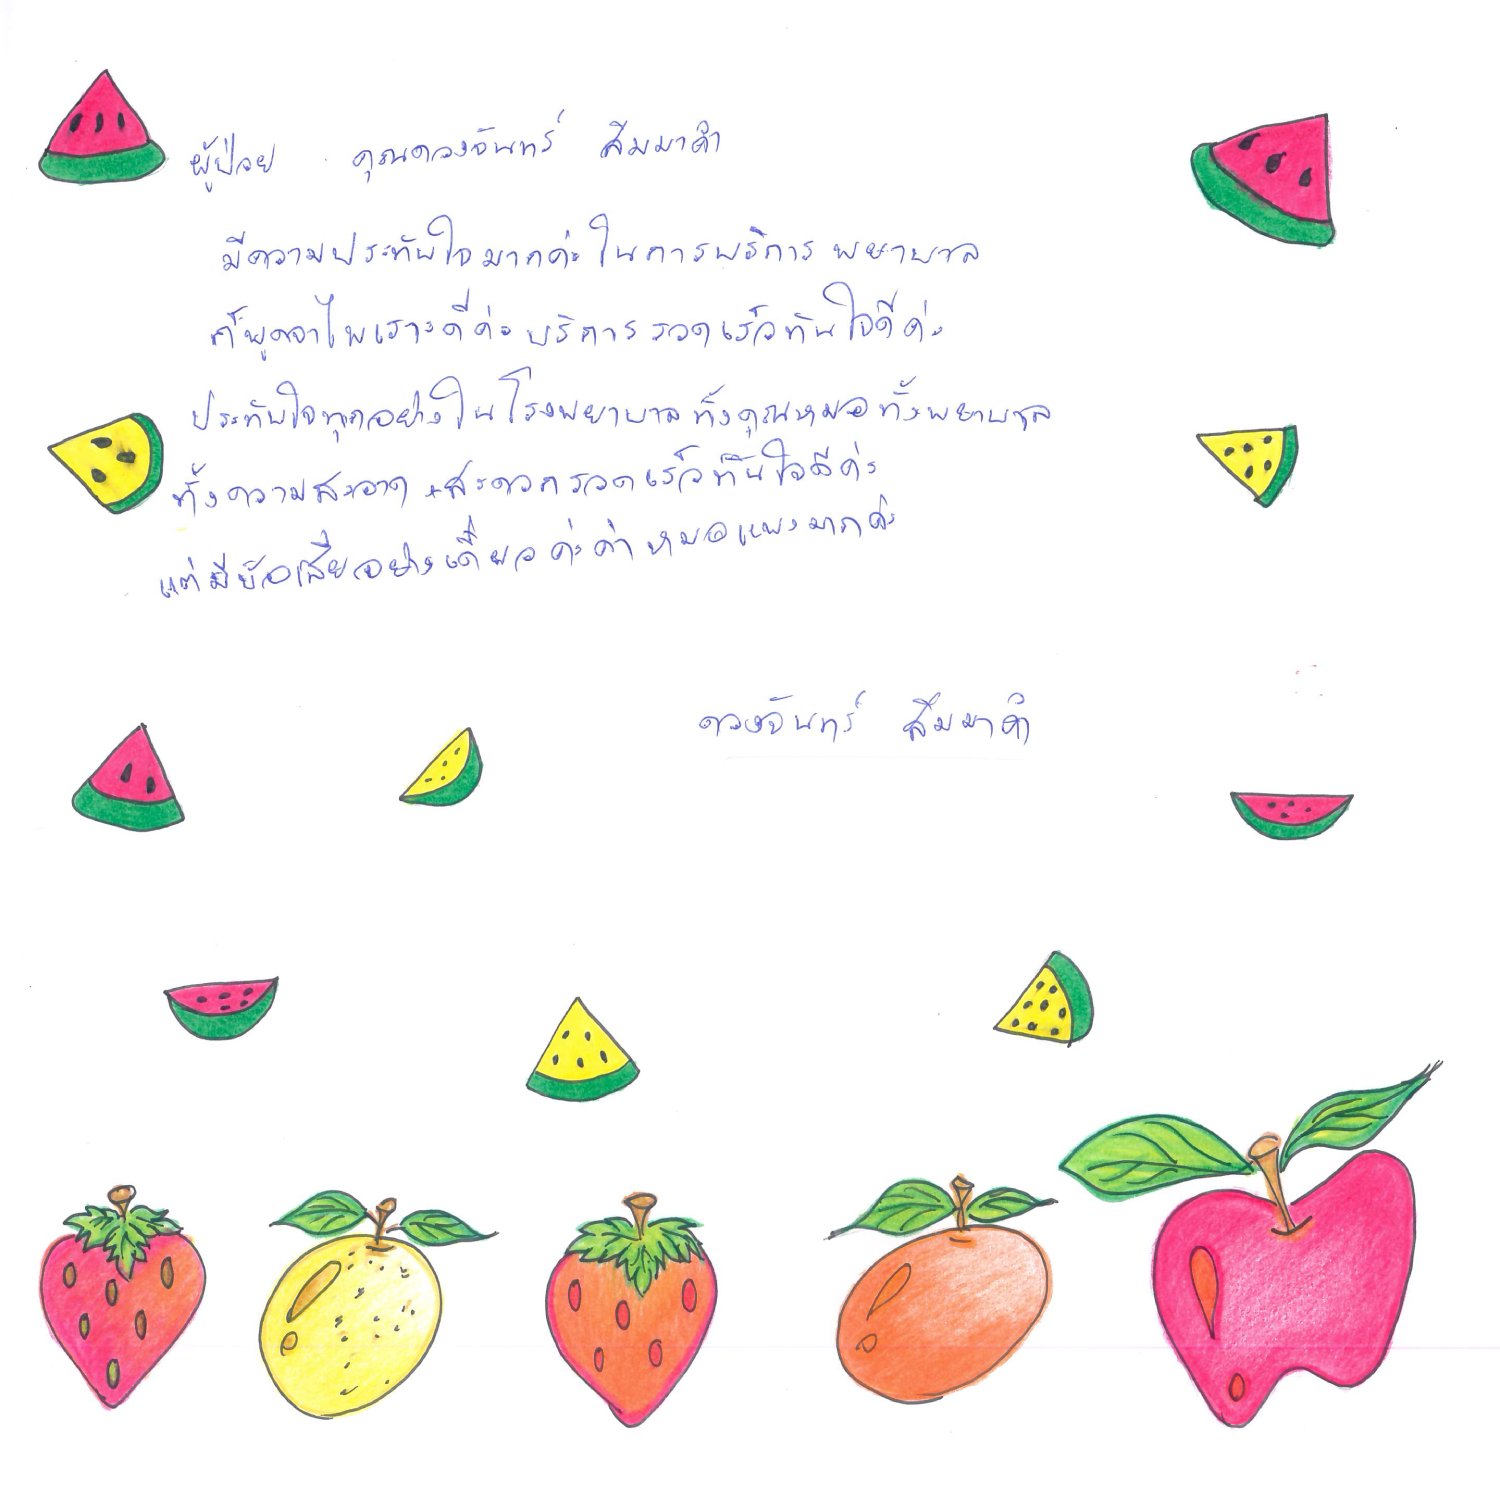 ผู้ป่วย คุณดวงจันทร์ สีมมาคำ
มีความประทับใจมากค่ะ ในการบริการ พยาบาล
ก็พูดจาไพเราะดีค่ะ บริการ รวดเร็วทันใจดีค่ะ
ประทับใจทุกอย่างในโรงพยาบาล ทั้งคุณหมอ ทั้งพยาบาล
ทั้งความสะอาด + สะดวก รวดเร็วทันใจดีค่ะ
แต่มีข้อเสียอย่างเดียวค่ะ ค่าหมอแพงมากค่ะ
ดวงจันทร์ สีมมาคำ